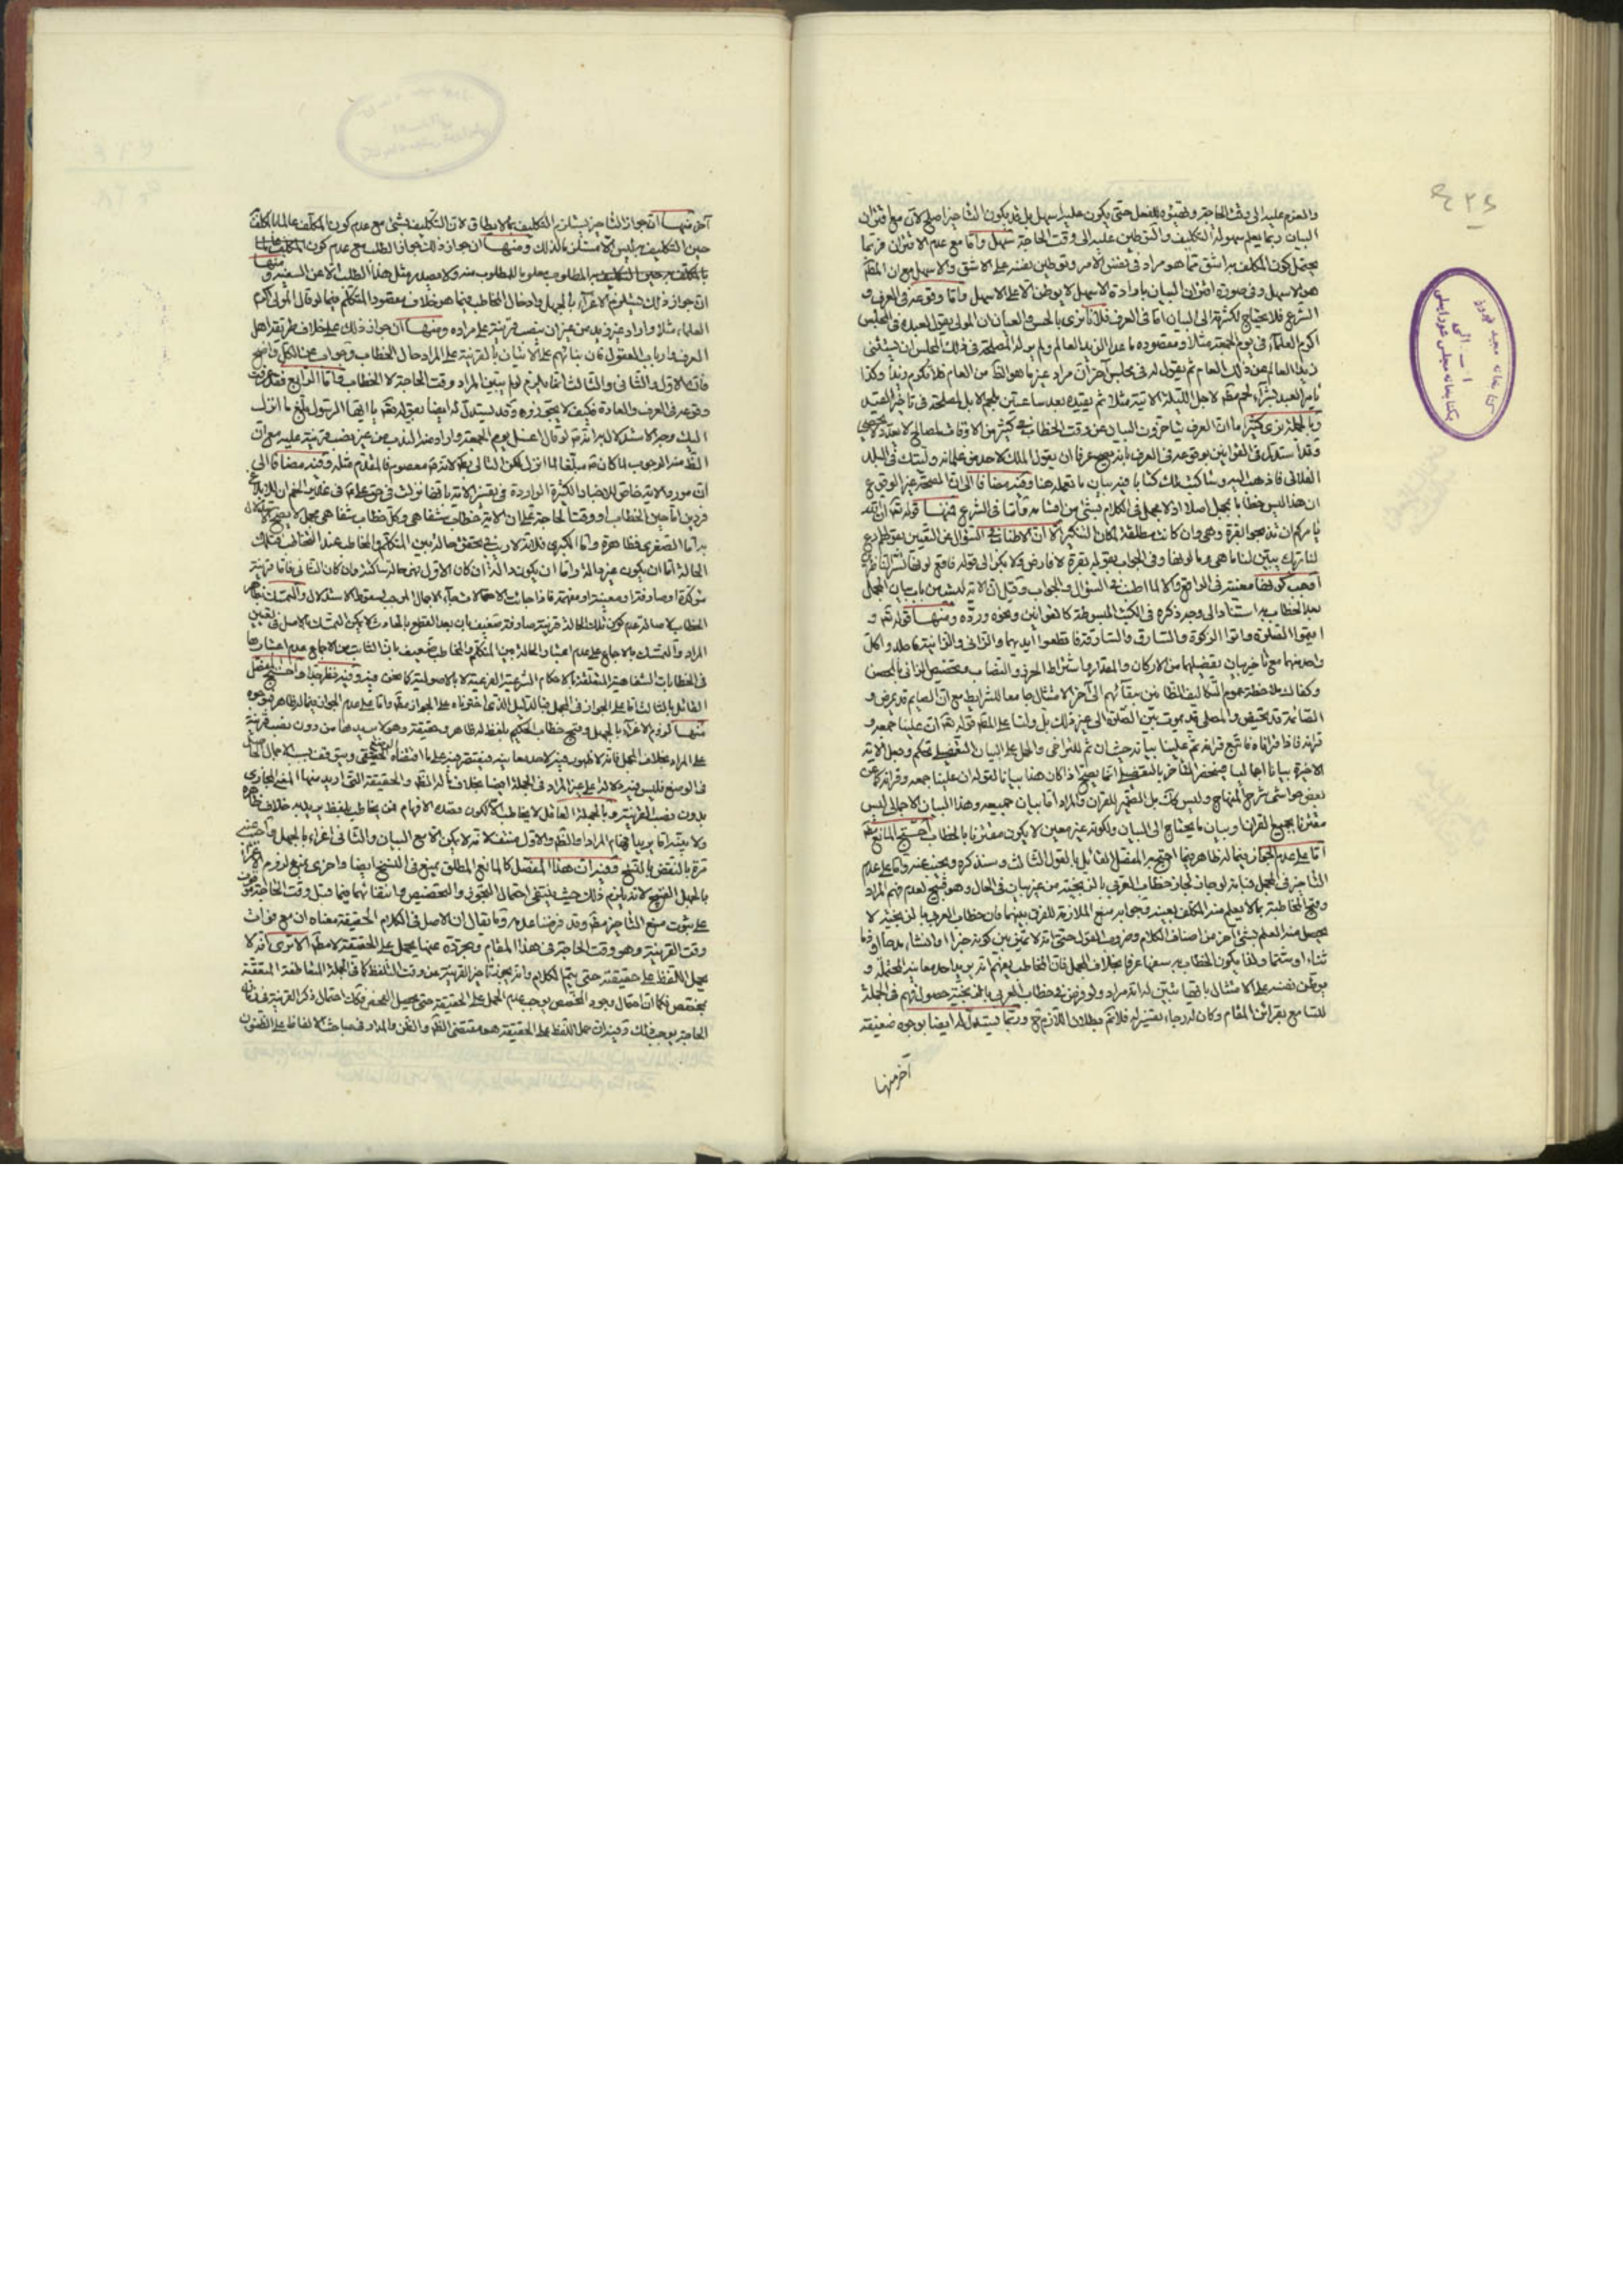 والعزم عليه الى وقت الحاجة وتهيئوه للفعل حتى يكون عليه اسهل بل قد يكون التاخير اصلح لان مع اقتران
البيان ربما يعلم سهولة التكليف والتوطين عليه الى وقت الحاجة سهل واما مع عدم الاقتران فربما
يحتمل كون المكلف به اشق مما هو مراد في نفس الامر وتوطين نفسه على الاشق والاسهل مع ان المقدم
هو الاسهل وفي صورة اقتران البيان بارادة الاسهل لا يوطن الا على الاسهل واما وقوعه في العرف و
الشرع فلا يحتاج لكثرته الى البيان اما في العرف فلانا نرى بالحس والعيان ان المولى يقول لعبده في المجلس
اكرم العلماء في يوم الجمعة مثلا ومقصوده ما عدا الزيد العالم ولم ير له المصلحة في ذلك المجلس ان يستثنى
زيدا العالم عن ذلك العام ثم يقول له في مجلس آخر ان مراد غير ما هو الظ من العام فلا تكرم زيدا وكذا
يامر العبد بشراء لحم مقدم لاجل الليلة الاتية مثلا ثم يقيده بعد ساعتين بلحم الابل لمصلحة في تاخير القيد
وبالجملة نرى كثيرا ما ان العرف يتاخرون البيان عن وقت الخطاب في كثير من الاوقات لمصالح لا تعد ولا تحصى
وقد استدل في القوانين بوقوعه في العرف بانه يصح عرفا ان يقول الملك لاحد من غلمانه وليتك في البلد
الفلاني فاذهب اليه وساكتب لك كتابا فيه بيان ما تعمله هنا وفيه مضافا الى ان المصلحة غير الوقوع
ان هذا ليس خطابا بمجمل اصلا اذ لا مجمل في الكلام بشيء من اقسامه واما في الشرع فمنها قوله تعالى ان الله
يامركم ان تذبحوا بقرة وهي وان كانت مطلقة لمكان التنكير الا ان الاطناب في السؤال عن التعيين بقولهم ادع
لنا ربك يبين لنا ما هي وما لونها وفي الجواب بقوله بقرة لا فارض ولا بكر الى قوله فاقع لونها تسر الناظرين
اوجب كونها معينة في الواقع والا لما اطنب في السؤال والجواب وقيل ان الاية ليست من باب بيان المجمل
بعد الخطاب به استنادا الى وجه ذكره في الكتب المبسوطة كالقوانين ونحوه ورده ومنها قوله تعالى و
اقيموا الصلوة واتوا الزكوة والسارق والسارقة فاقطعوا ايديهما والزاني والزانية فاجلدوا كل
واحد منهما مع تاخير بيان تفصيلهما من الاركان والمقدار واشتراط الحرز والنصاب وتخصيص الزاني بالمحصن
وكفاك ملاحظة عموم التكاليف
الصائمة قد تحيض والمصلي قد يموت بين الصلوة الى غير ذلك بل ولنا على المقدم قوله تعالى ان علينا جمعه و
قرانه فاذا قراناه فاتبع قرانه ثم ان علينا بيانه حيث ان ثم للتراخي والحمل على البيان التفصيلي تحكم وجعل الاية
الاخيرة بيانا اجماليا
بعض حواشي شرح المنهاج وليس كذلك بل الضمير للقران والمراد اما بيان جميعه وهذا البيان الاجمالي ليس
مقترنا بجميع القران او بيان ما يحتاج الى البيان ولكونه غير معين لا يكون مقترنا بالخطاب احتج المانع مط
اما على عدم الجواز فيما له ظاهر فبما احتج به المفصل القائل بالقول الثالث وسنذكره ونجيب عنه واما على عدم
التاخير في المجمل فبانه لو جاز لجاز خطاب العربي بالزنجية من غير بيان في الحال وهو قبيح لعدم فهم المراد
وقبح المخاطبة بما لا يعلم منه المكلف بعينه وجوابه منع الملازمة للفرق بينهما فان خطاب العربي بالزنجية لا
يحصل منه العلم بشيء آخر من اصناف الكلام وضروب القول حتى انه لا تميز بين كونه خبرا او انشاء مدحا او ذما
ثناء او شتما ولهذا يكون الخطاب به سفها عرفا بخلاف المجمل فان المخاطب يفهم انه يريد احد معانيه المحتملة و
يوطن نفسه على الامتثال بايها تبين له انه مراد ولو فرض في خطاب العربي بالزنجية حصول فهم في الجملة
للسامع بقرائن المقام وكان له رجاء تفسيره فلا نم بطلان اللازم ح وربما يستدل له ايضا بوجوه ضعيفة
آخر منها
آخر منها ان جواز التاخير يستلزم التكليف بما لا يطاق لان التكليف بشيء مع عدم كون المكلف عالما بالمكلف
حين التكليف به ليس الا مستلزما لذلك ومنها ان جواز ذلك تجواز الطلب مع عدم كون
ان جواز ذلك يستلزم الاغراء بالجهل وادخال المخاطب فيما هو خلاف مقصود المتكلم فيما لو قال المولى اكرم
العلماء مثلا واراد غير زيد من غير ان ينصب قرينة على مراده ومنها ان جواز ذلك على خلاف طريقة اهل
العرف وارباب العقول فان بنائهم على الاتيان بالقرينة على المراد حال الخطاب وجواب عن الكل واضح
فان الاول والثاني والثالث انما يلزم لو لم يتبين المراد وقت الحاجة لا الخطاب واما الرابع فقد عرفت
وقوعه في العرف والعادة فكيف لا يجوزوه وقد يستدل له ايضا بقوله تعالى يا ايها الرسول بلغ ما انزل
اليك وجه الاستدلال به انه لو قال اغتسل يوم الجمعة واراد منه الندب من غير نصب قرينة عليه مع ان
الظ منه الوجوب لما كان مبلغا لما انزل لكن التالي بط لانه معصوم فالمقدم مثله وفيه مضافا الى
ان مورد الاية خاص للاخبار الكثيرة الواردة في تفسير الاية بانها نزلت في حق علي في غدير خم ان البلاغ
فردين اما حين الخطاب او وقت الحاجة على ان الاية خطاب شفاهي وكل خطاب شفاهي مجمل لا يصح الاستدلال
به اما الصغرى فظاهرة واما الكبرى فلانه لا ريب في تحقق حالة بين المتكلم والمخاطب عند التخاطب فتلك
الحالة اما ان يكون غير دالة واما ان يكون دالة ان كان الاول فهي حالة ساكتة وان كان الثاني فاما قرينة
مؤكدة او صارفة او معينة او مفهمة فاذا جائت الاحتمالات جاء الاجمال الموجب لسقوط الاستدلال والتمسك بظاهر
الخطاب لاصالة عدم كون تلك الحالة قرينة صارفة ضعيف بان بعد القطع بالحادث لا يمكن التمسك بالاصل في تعيين
المراد والتمسك بالاجماع على عدم اعتبار الحالة بين المتكلم والمخاطب ضعيف بان الثابت من الاجماع عدم اعتبارها
في الخطابات الشفاهية المتعلقة بالاحكام الشرعية الفرعية لا بالاصولية كما نحن فيه وفيه نظر جدا واحتج المفصل
القائل بالثالث اما على الجواز في المجمل فبالدليل الذي اخترناه على الجواز مط واما على عدم الجواز فيما له ظاهر فبوجوه
منها لزوم الاغراء بالجهل وقبح خطاب الحكيم بلفظ له ظاهر وحقيقة وهو لا يريدها من دون نصب قرينة
على المراد بخلاف المجمل
في الوضع فليس فيه دلالة على غير المراد في الجملة ايضا بخلاف ما له الظ والحقيقة التي اريد منها المعنى المجازي
بدون نصب القرينة وبالجملة العاقل لا يخاطب الا لكون قصده الافهام فمن يخاطب بلفظ يريد به خلاف ظاهره
ولا يبينه اما يريد افهام المراد او الظ والاول منتف لانه لا يمكن الا مع البيان والثاني اغراء بالجهل واجيب عنه
مرة بالنقض بالنسخ وفيه ان هذا المفصل كالمانع المطلق يمنع في النسخ ايضا واخرى بمنع لزوم الاغراء
بالجهل القبيح لانه يلزم ذلك حيث ينتفي احتمال التجوز والتخصيص وانتفائهما فيما قبل وقت الحاجة موقوف
على ثبوت منع التاخير مط وقد فرضنا عدمه وما يقال ان الاصل في الكلام الحقيقة معناه ان مع فوات
وقت القرينة وهو وقت الحاجة في هذا المقام وتجرده عنها يحمل على الحقيقة لا مط الا ترى انه لا
يحمل اللفظ على حقيقته حتى يتم الكلام وانه يجوز تاخير القرينة عن وقت التلفظ كما في الجملة المتعاطفة المتعقبة
بمخصص فكما ان احتمال وجود المخصص يوجب عدم الحمل على الحقيقة حتى يحصل الفحص فكذلك احتمال ذكر القرينة في زمان
الحاجة يوجب ذلك وفيه ان حمل اللفظ على الحقيقة هو مقتضى الظ والظن والمدار في مباحث الالفاظ على الظنون